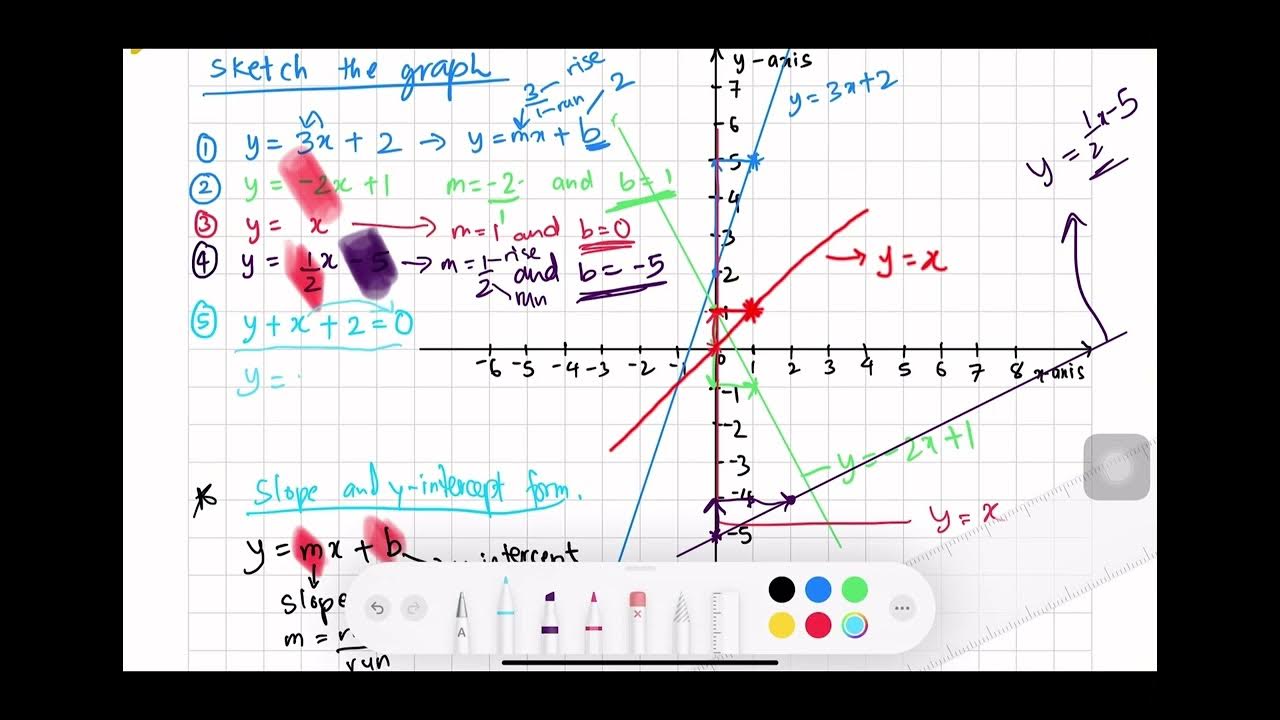 sketch the graph
3 rise
1 run
2
① y = 3x + 2 → y = mx + b
② y = -2x + 1 m = -2 and b = 1
1
③ y = x → m = 1 and b = 0
④ y = 1/2 x - 5 → m = 1/2 rise run and b = -5
⑤ y + x + 2 = 0
y =
* Slope and y-intercept form.
y = mx + b
slope
m =
run
y-axis
7
6
5
4
3
2
1
-6 -5 -4 -3 -2 -1 0 1 2 3 4 5 6 7 8 x-axis
-1
-2
-3
-4
-5
y = 3x+2
y = 1/2 x-5
y = x
y = -2x+1
y = x
A